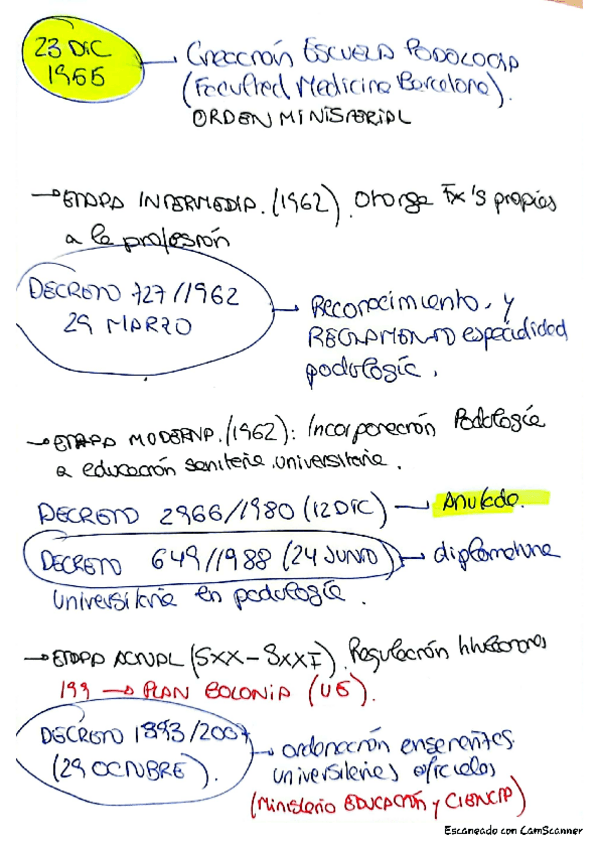 23 DIC → Creación ESCUELA PODOLOGIA
1966 (Facultad Medicina Barcelona).
ORDEN MINISTERIAL
→ ETAPA INTERMEDIA. (1962). Otorga Fx's propias
a la profesión
DECRETO 727//1962 → Reconocimiento, y
29 MARZO REGLAMENTO especialidad
podología.
→ ETAPA MODERNA. (1962): Incorporación Podología
a educación sanitaria universitaria.
DECRETO 2966/1980 (12 DIC) → Anulado.
DECRETO 649//1988 (24 JUNIO) → diplomatura
universitaria en podología.
→ ETAPA ACTUAL (SXX-SXXI). Regulación
199 → PLAN BOLONIA (UE).
DECRETO 1393/2007 → ordenación enseñantes
(29 OCTUBRE). universitarias oficiales
(Ministerio EDUCACIÓN y CIENCIA)
Escaneado con CamScanner